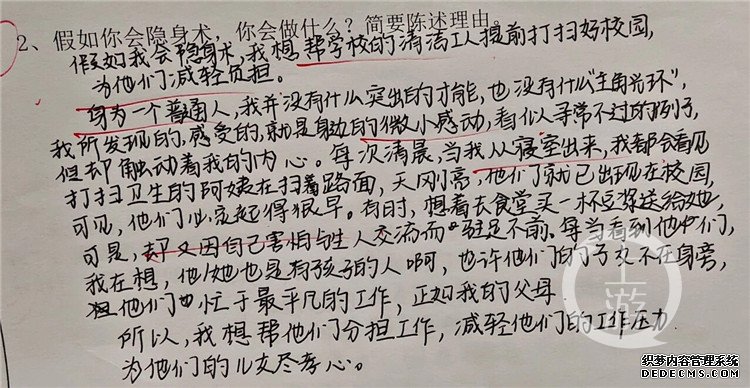 2、假如你会隐身术，你会做什么？简要陈述理由。
假如我会隐身术，我想帮学校的清洁工人提前打扫好校园，
为他们减轻负担。
身为一个普通人，我并没有什么突出的才能，也没有什么“主角光环”，
我所发现的，感受的，就是身边的微小感动，看似人寻常不过的例子，
但却触动着我的内心。每次清晨，当我从寝室出来，我都会看见
打扫卫生的阿姨在扫着路面，天刚亮，他们就已出现在校园，
可见，他们必定起得很早。有时，想着去食堂买一杯豆浆送给她，
可是，却又因自己害怕与生人交流而驻足不前。每当看到他们，
我在想，他/她也是有孩子的人啊，也许他们的子女不在身旁，
他们也忙于最平凡的工作，正如我的父母。
所以，我想帮他们分担工作，减轻他们的工作压力，
为他们的儿女尽孝心。
上游
软文内容管理系统
WWW.DEDECMS.COM